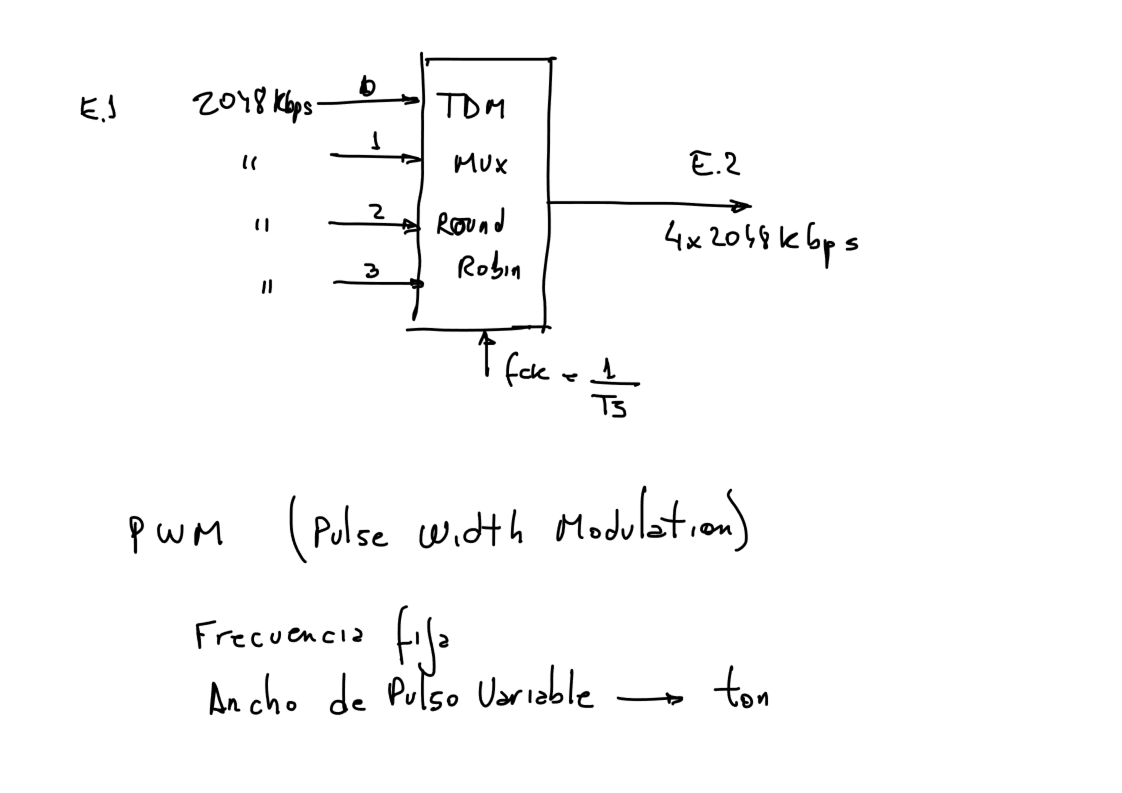 E.1 2048 Kbps 0 TDM
" 1 MUX
E.2
" 2 Round
4x2048 Kbps
" 3 Robin
fck = 1/Ts
PWM (Pulse Width Modulation)
Frecuencia fija
Ancho de Pulso Variable → ton